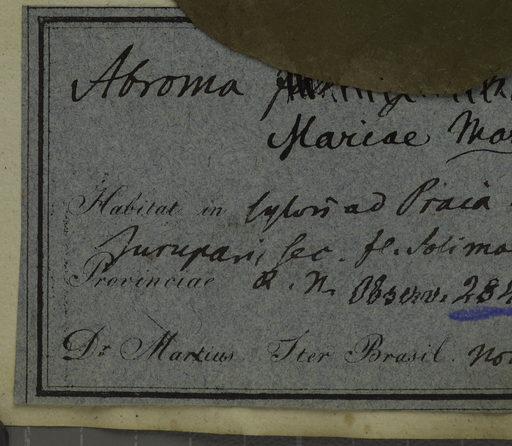 Abroma
Mariae Mar
Habitat in sylvis ad Praia
Jurupari, sec. fl. Solimo
Provinciae R. N. Observ. 284
Dr Martius Iter Brasil. Nov